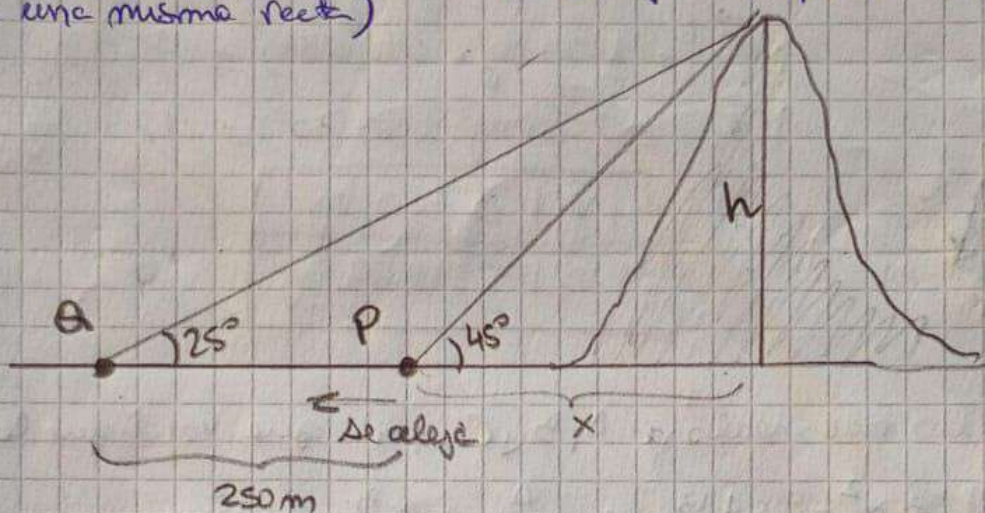 una misma recta)
h
Q
25°
P
45°
se aleja
x
250 m